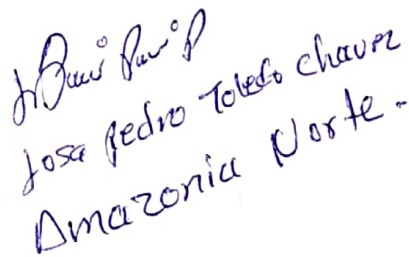 Josa Pedro Toledo Chavez
Amazonia Norte.